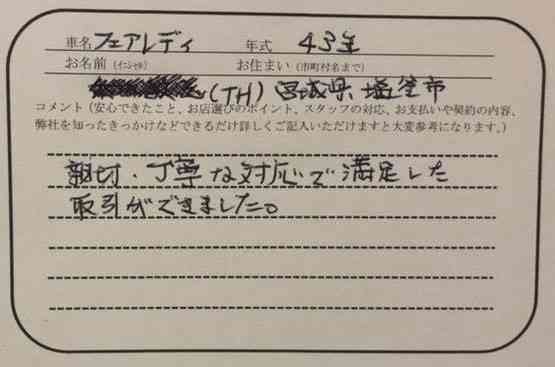 車名 フェアレディ 年式 43年
お名前(イニシャル) お住まい(市町村名まで)
(TH) 宮城県 塩釜市
コメント(安心できたこと、お店選びのポイント、スタッフの対応、お支払いや契約の内容、
弊社を知ったきっかけなどできるだけ詳しくご記入いただけますと大変参考になります。)
親切・丁寧な対応で満足した
取引ができました。